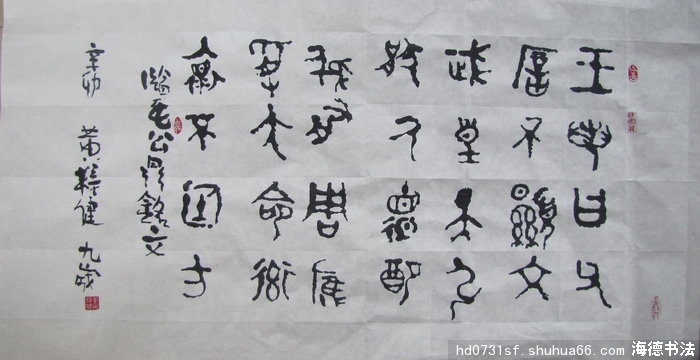 王若曰父
厝不顯文
武皇天弘
猒厥德配
我有周膺
受大命率
懷不廷方
臨毛公鼎銘文
辛卯 黄健 九歲
hd0731sf.shuhua66.com 海德书法